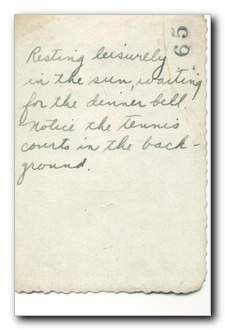 65
Resting leisurely
in the sun, waiting
for the dinner bell
Notice the tennis
courts in the back-
ground.